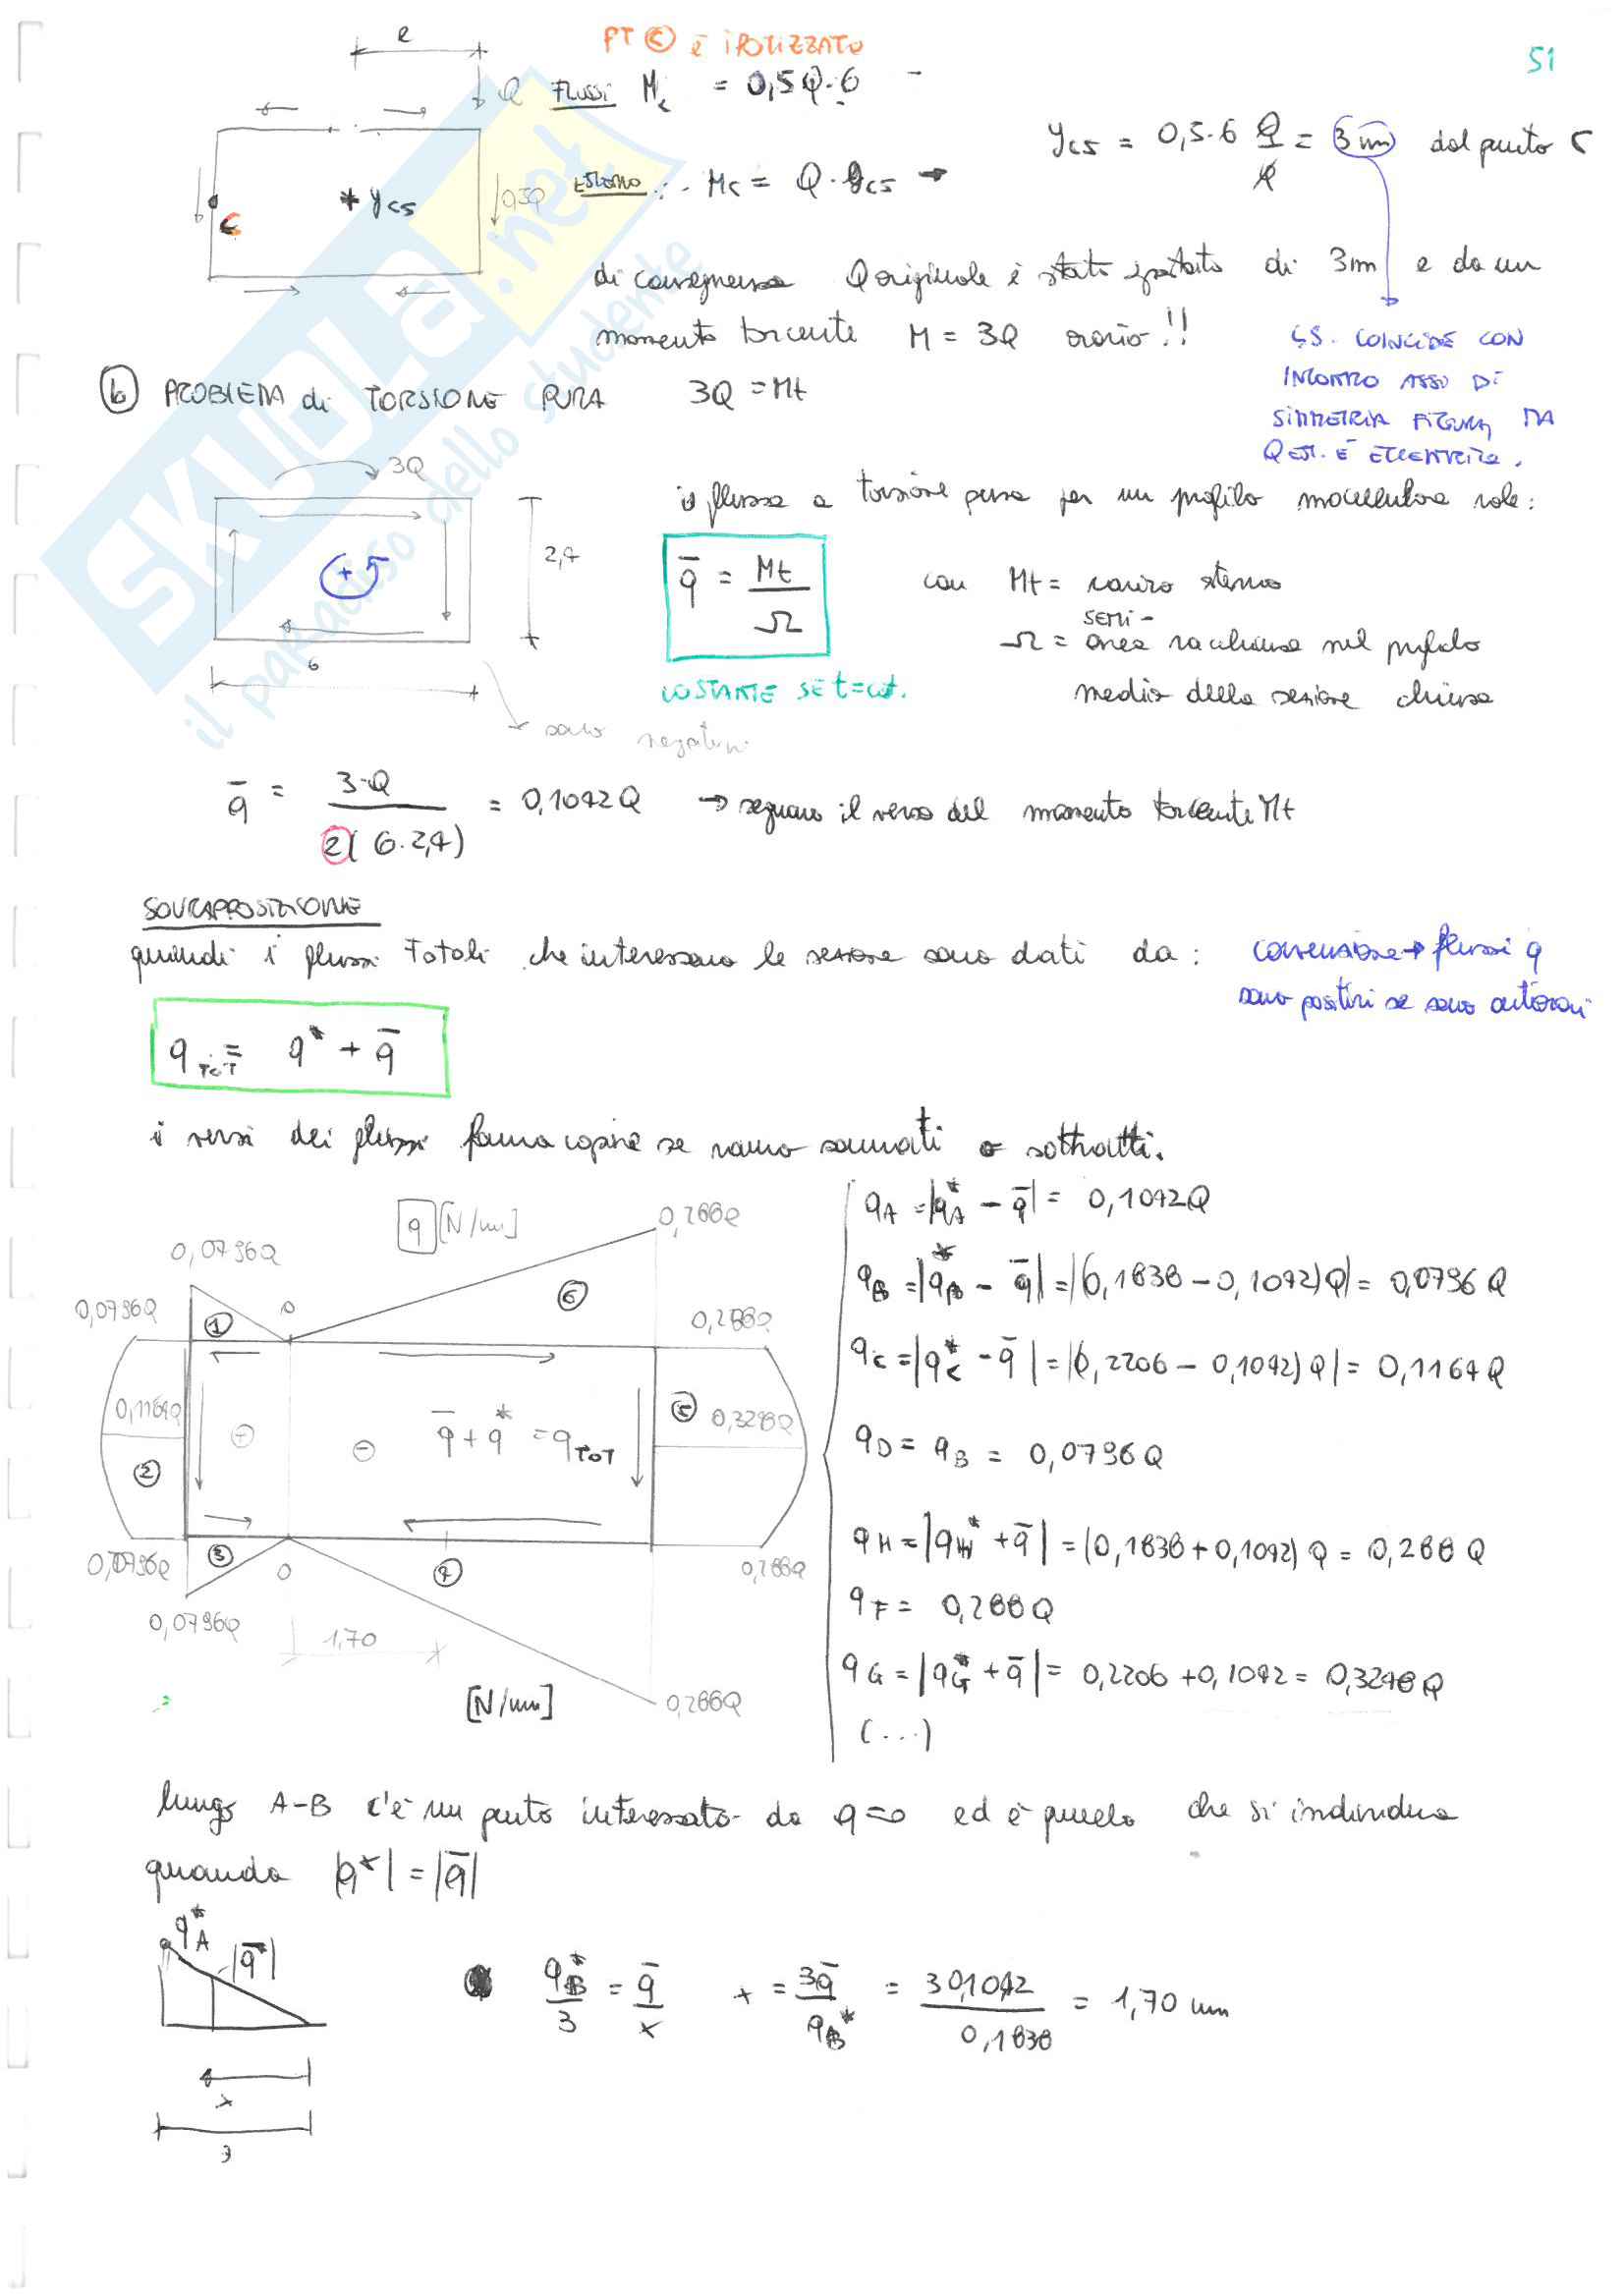 e
PT C è IPOTIZZATO
51
Q FLUSSI Mc = 0,5Q·6
ycs = 0,5·6 Q/Q = 3 mm dal punto C
ESTERNO: Mc = Q·ycs →
* ycs
0,5Q
C
di conseguenza Q originale è stato spostato di 3mm e da un
momento torcente M = 3Q orario!!
CS. COINCIDE CON
INCONTRO ASSI DI
SIMMETRIA FIGURA, MA
Q EST. È ECCENTRICA.
b PROBLEMA di TORSIONE PURA 3Q = Mt
3Q
il flusso a torsione pura per un profilo monocellulare vale:
+
2,4
q̄ = Mt/Ω
con Mt = carico esterno
SEMI-
Ω = area racchiusa nel profilo
medio della sezione chiusa
6
COSTANTE SE t=cost.
sono negativi
q̄ = 3·Q / 2(6·2,4) = 0,1042Q → seguono il verso del momento torcente Mt
SOVRAPPOSIZIONE
quindi i flussi totali che interessano la sezione sono dati da:
convenzione → flussi q
sono positivi se sono antiorari
qTOT = q* + q̄
i versi dei flussi fanno capire se vanno sommati o sottratti.
q [N/mm]
0,288Q
0,0796Q
0,0796Q
0
1
6
0,288Q
0,1164Q
+
-
q̄ + q* = qTOT
5
0,3248Q
2
0,0796Q
3
0
4
0,288Q
0,0796Q
1,70
[N/mm]
0,288Q
qA = |q*A - q̄| = 0,1042Q
qB = |q*B - q̄| = |(0,1838 - 0,1042)Q| = 0,0796Q
qC = |q*C - q̄| = |(0,2206 - 0,1042)Q| = 0,1164Q
qD = qB = 0,0796Q
qH = |qH* + q̄| = (0,1838 + 0,1042)Q = 0,288Q
qF = 0,288Q
qG = |q*G + q̄| = 0,2206 + 0,1042 = 0,3248Q
(...)
lungo A-B c'è un punto interessato da q=0 ed è quello che si individua
quando |q*| = |q̄|
q*A
|q̄|
q*B/3 = q̄/x x = 3q̄/qB* = 3 0,1042/0,1838 = 1,70 mm
x
3
SKUOLA.net
il paradiso dello studente